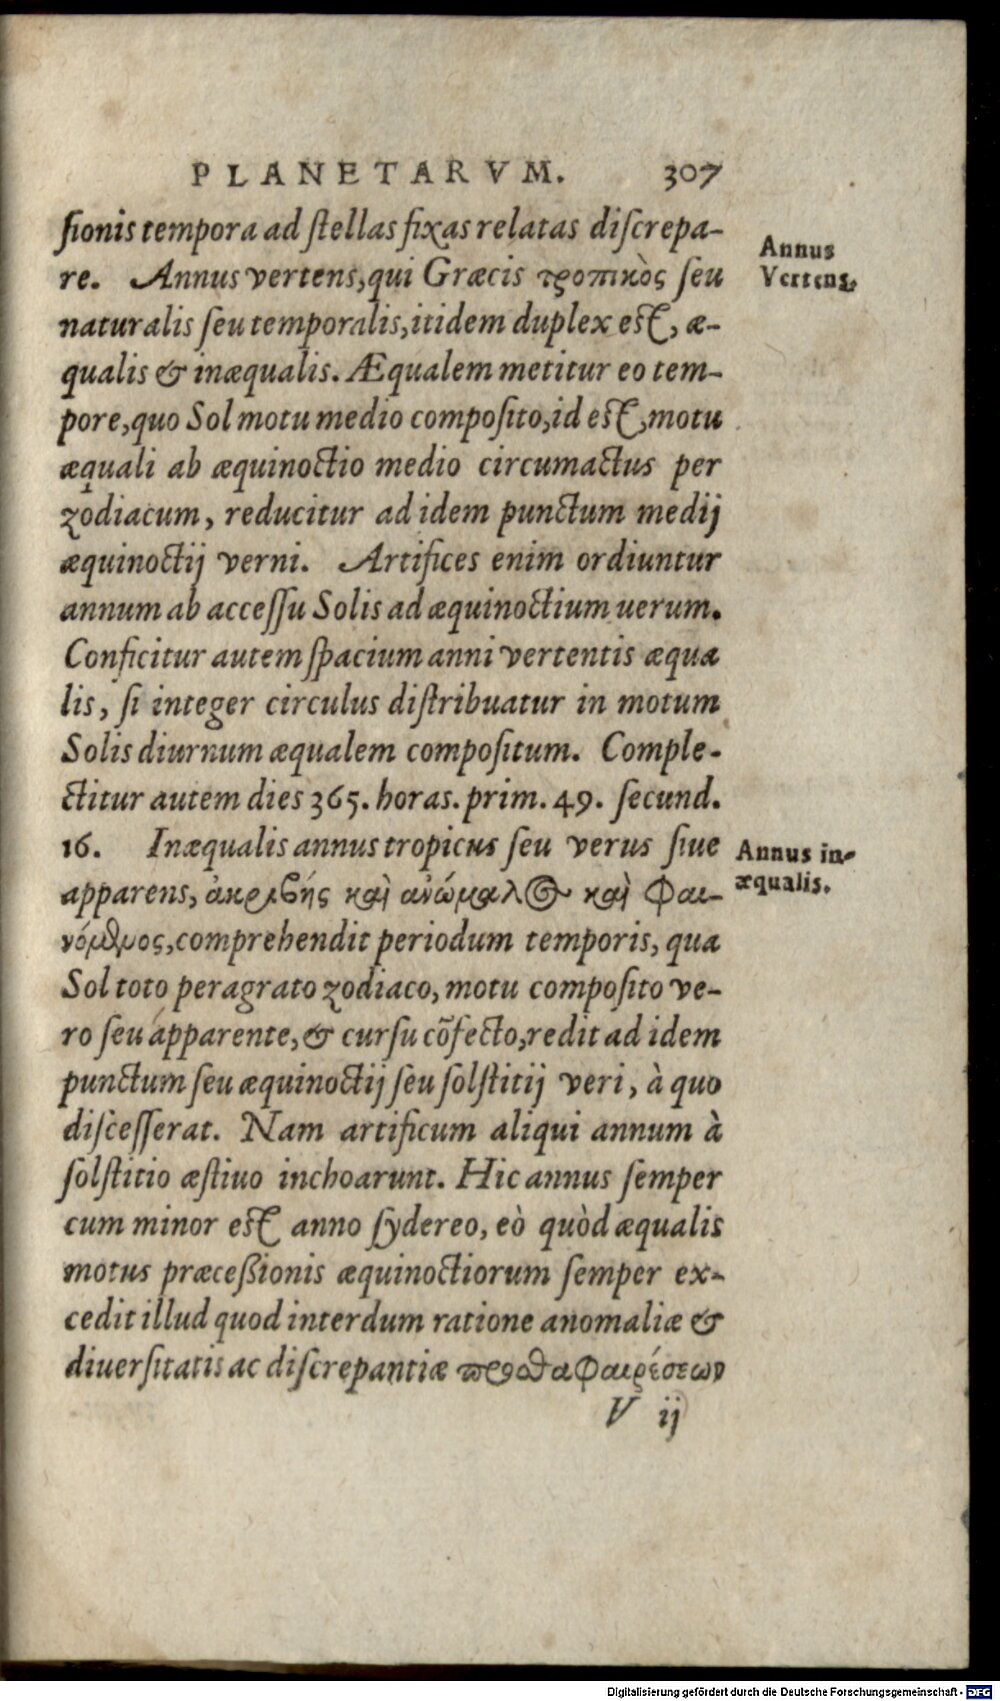 PLANETARVM. 307
ſionis tempora ad ſtellas fixas relatas diſcrepa-
re. Annus vertens, qui Græcis τροπικὸς ſeu
Annus
Vertens.
naturalis ſeu temporalis, itidem duplex eſt, æ-
qualis & inæqualis. Æqualem metitur eo tem-
pore, quo Sol motu medio compoſito, id eſt, motu
æquali ab æquinoctio medio circumactus per
zodiacum, reducitur ad idem punctum medij
æquinoctij verni. Artifices enim ordiuntur
annum ab acceſſu Solis ad æquinoctium uerum.
Conficitur autem ſpacium anni vertentis æqua
lis, ſi integer circulus diſtribuatur in motum
Solis diurnum æqualem compoſitum. Comple-
ctitur autem dies 365. horas. prim. 49. ſecund.
16. Inæqualis annus tropicus ſeu verus ſiue
Annus in-
æqualis.
apparens, ἀκριβής καὶ ἀνώμαλος καὶ φαι-
νόμενος, comprehendit periodum temporis, qua
Sol toto peragrato zodiaco, motu compoſito ve-
ro ſeu apparente, & curſu cōfecto, redit ad idem
punctum ſeu æquinoctij ſeu ſolſtitij veri, à quo
diſceſſerat. Nam artificum aliqui annum à
ſolſtitio æſtiuo inchoarunt. Hic annus ſemper
cum minor eſt anno ſydereo, eò quòd æqualis
motus præceßionis æquinoctiorum ſemper ex-
cedit illud quod interdum ratione anomaliæ &
diuerſitatis ac diſcrepantiæ προσθαφαιρέσεων
V ij
Digitalisierung gefördert durch die Deutsche Forschungsgemeinschaft - DFG